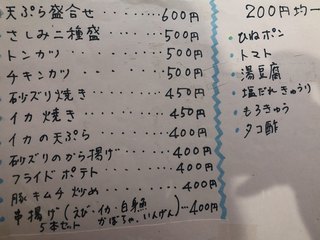 天ぷら盛合せ……600円
さしみ二種盛……500円
トンカツ……500円
チキンカツ……500円
砂ズリ焼き……450円
イカ焼き……450円
イカの天ぷら……400円
砂ズリのから揚げ……400円
フライドポテト……400円
豚キムチ炒め……400円
串揚げ(えび・イカ・白魚…400円
5本セット かぼちゃ、いんげん)
200円均一
・ひねポン
・トマト
・湯豆腐
・塩だれきゅうり
・もろきゅう
・タコ酢